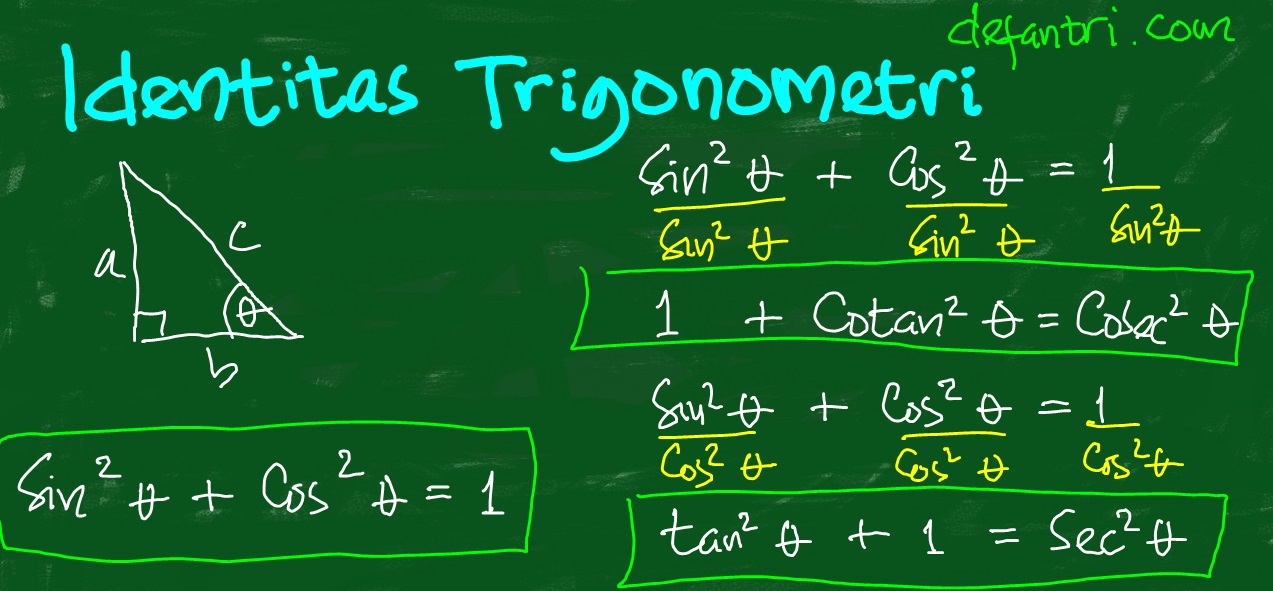 defantri.com
Identitas Trigonometri
a
c
θ
b
Sin² θ + Cos² θ = 1
Sin² θ / Sin² θ + Cos² θ / Sin² θ = 1 / Sin² θ
1 + Cotan² θ = Cosec² θ
Sin² θ / Cos² θ + Cos² θ / Cos² θ = 1 / Cos² θ
tan² θ + 1 = Sec² θ